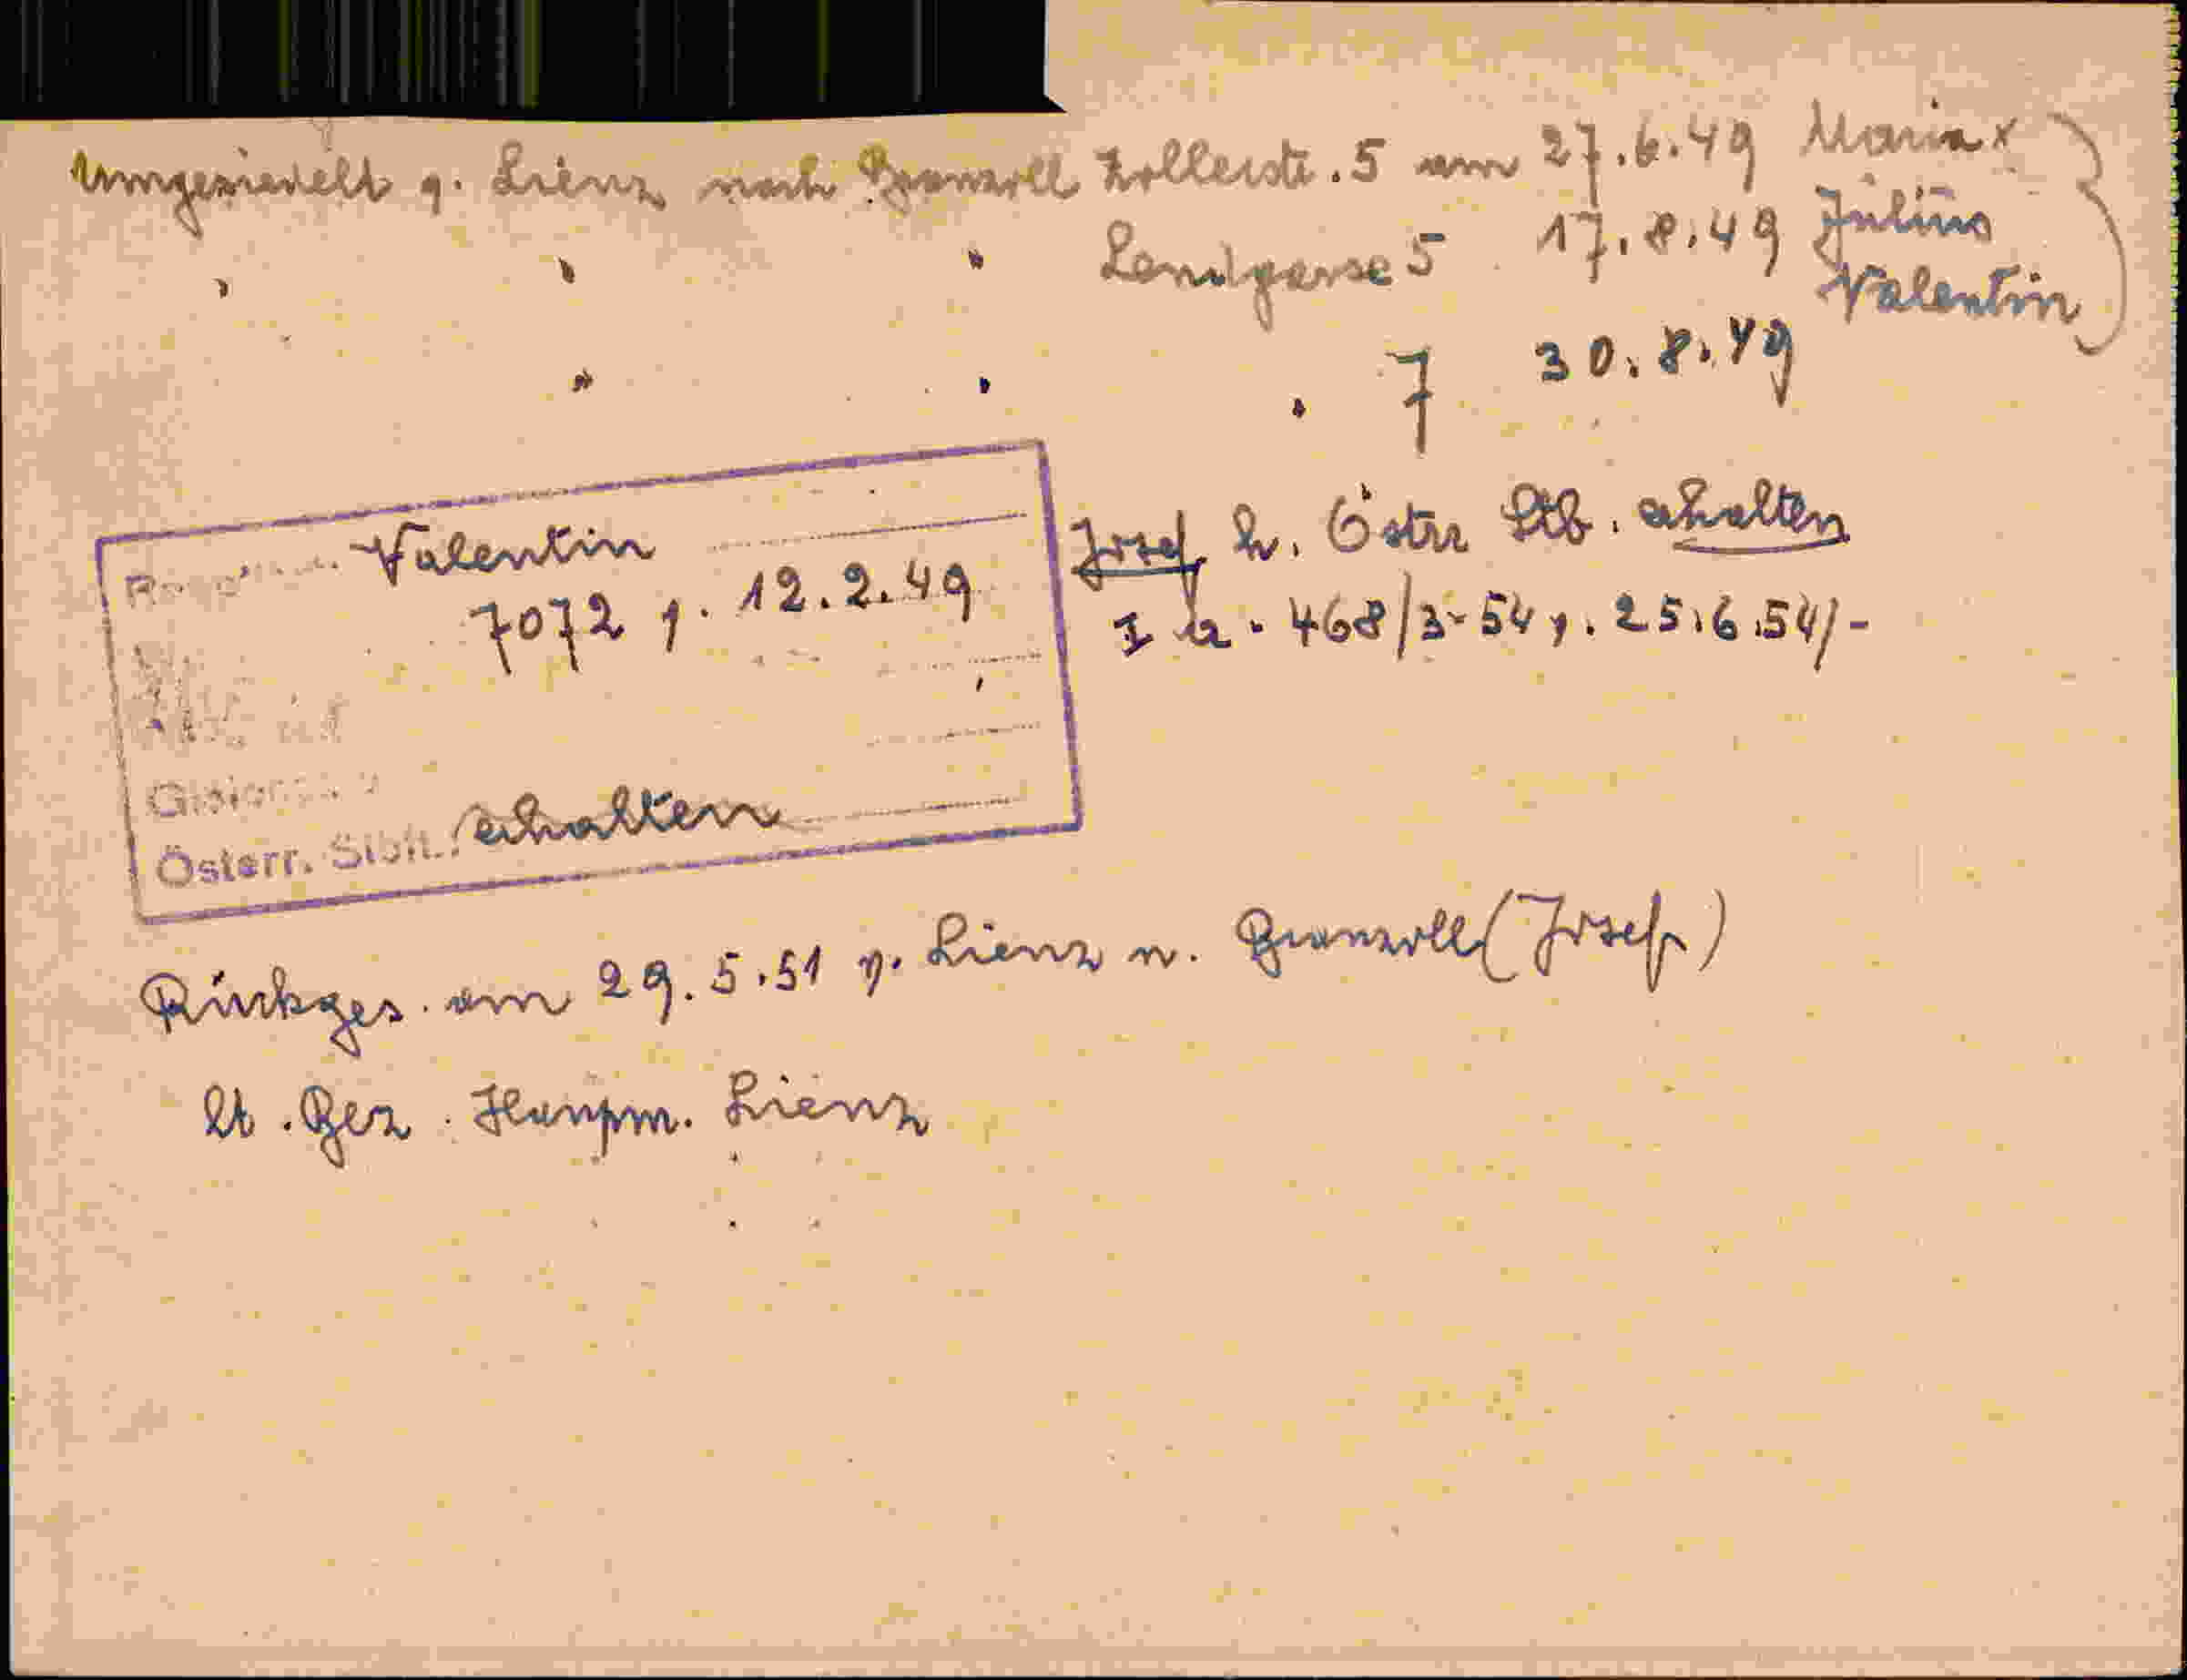 Umgesiedelt v. Lienz nach Branzoll Zollerstr. 5 am 27.6.49 Maria x
" " " Landgasse 5 17.8.49 Julius
Valentin
" " " 7 30.8.49
Valentin
7072 v. 12.2.49
Österr. Stbft. erhalten
Josef h. Östrr Stb. erhalten
I a. 468/3-54 v. 25.6.54/-
Rückges. am 29.5.51 v. Lienz n. Branzoll (Josef)
lt. Bez. Haupm. Lienz